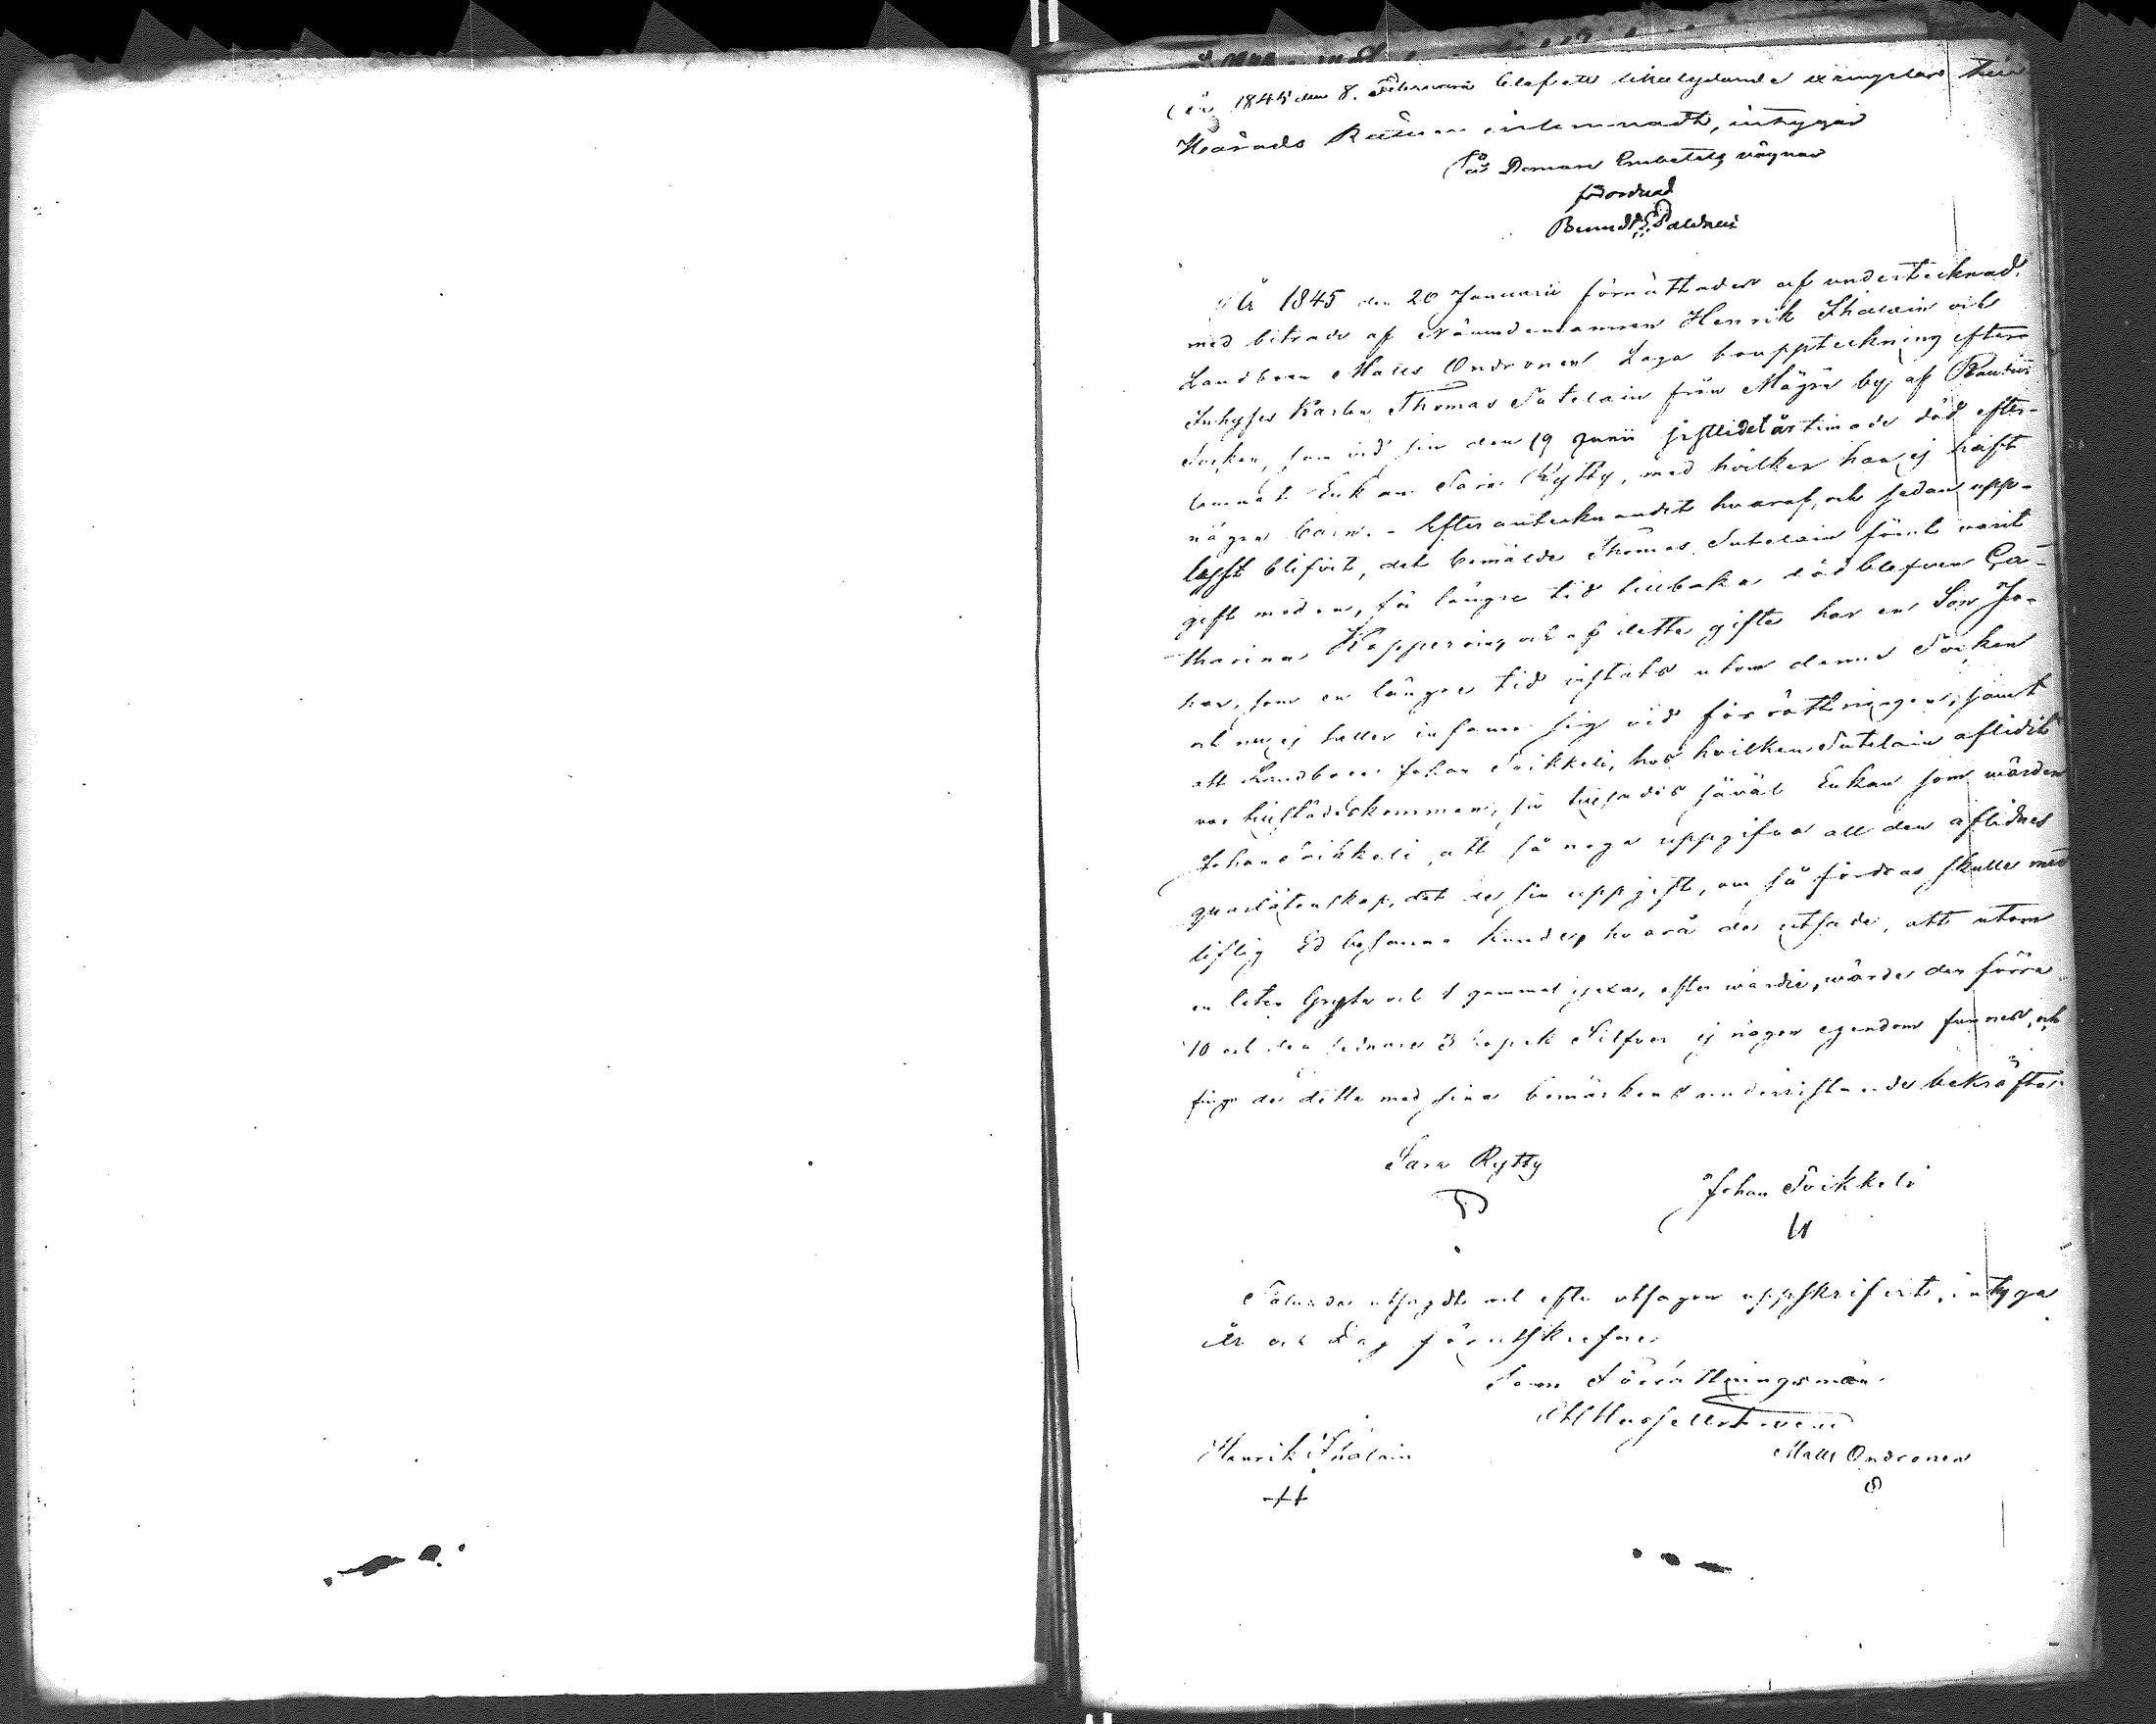 År 1845 den 8. Februarii blef ett likalydande exemplar till
Härads Rätten inlemnadt, intygar
På Domare Embetets vägnar
förordnad
År 1845 den 20 Januarii förrättades af undertecknad
med biträde af Nämndemannen Henrik Ihalain och
Landbonden Matts Ondronen Laga bouppteckning efter
Inhyses Karlen Thomas Sutelain från Mägrä by af Rautus
Socken, som vid sin den 19 Junii sistlidet år timade död efter-
lemnat Enkan Sara Rytty, med hvilken han ej haft
några barn. - Efter antecknandet hvaraf, och sedan upp-
lyst blifvit, det bemälde Thomas Sutelain förut varit
gift med en, för längre tid tillbaka död blefven Ca-
tharina Kopperoin, och af detta gifte har en Son Jo-
han, som en längre tid vistats utom denna Socken
och nu ej heller infann sig vid förrättningen, samt
att Landbonden Johan Toikkeli, hos hvilken Sutelain aflidit
var tillstädeskommen, så tillsades såväl Enkan som värden
Johan Toikkeli, att så noga uppgifva all den aflidnes
qvarlåtenskap, det de sin uppgift, om så fordras skulle med
liflig Ed besanna kunde, hvarå de utsade, att utom
en liten Gryta och 1 gammal yxa, efter wärdie, wärde den förra
10 och den sednare 3 kopek Silfver ej någon egendom funnes, och
finge de detta med sina bomärkens underristande bekräfta.
Sara Rytty
Johan Toikkeli
Sålunda utsagdt och efter utsagon uppskrifvit, intyga
År och Dag förutskrefne.
Som Förrättningsmän
Henrik Ihalain
Matts Ondronen